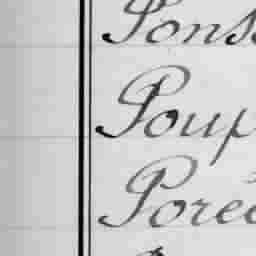 Pons
Poup
Poree